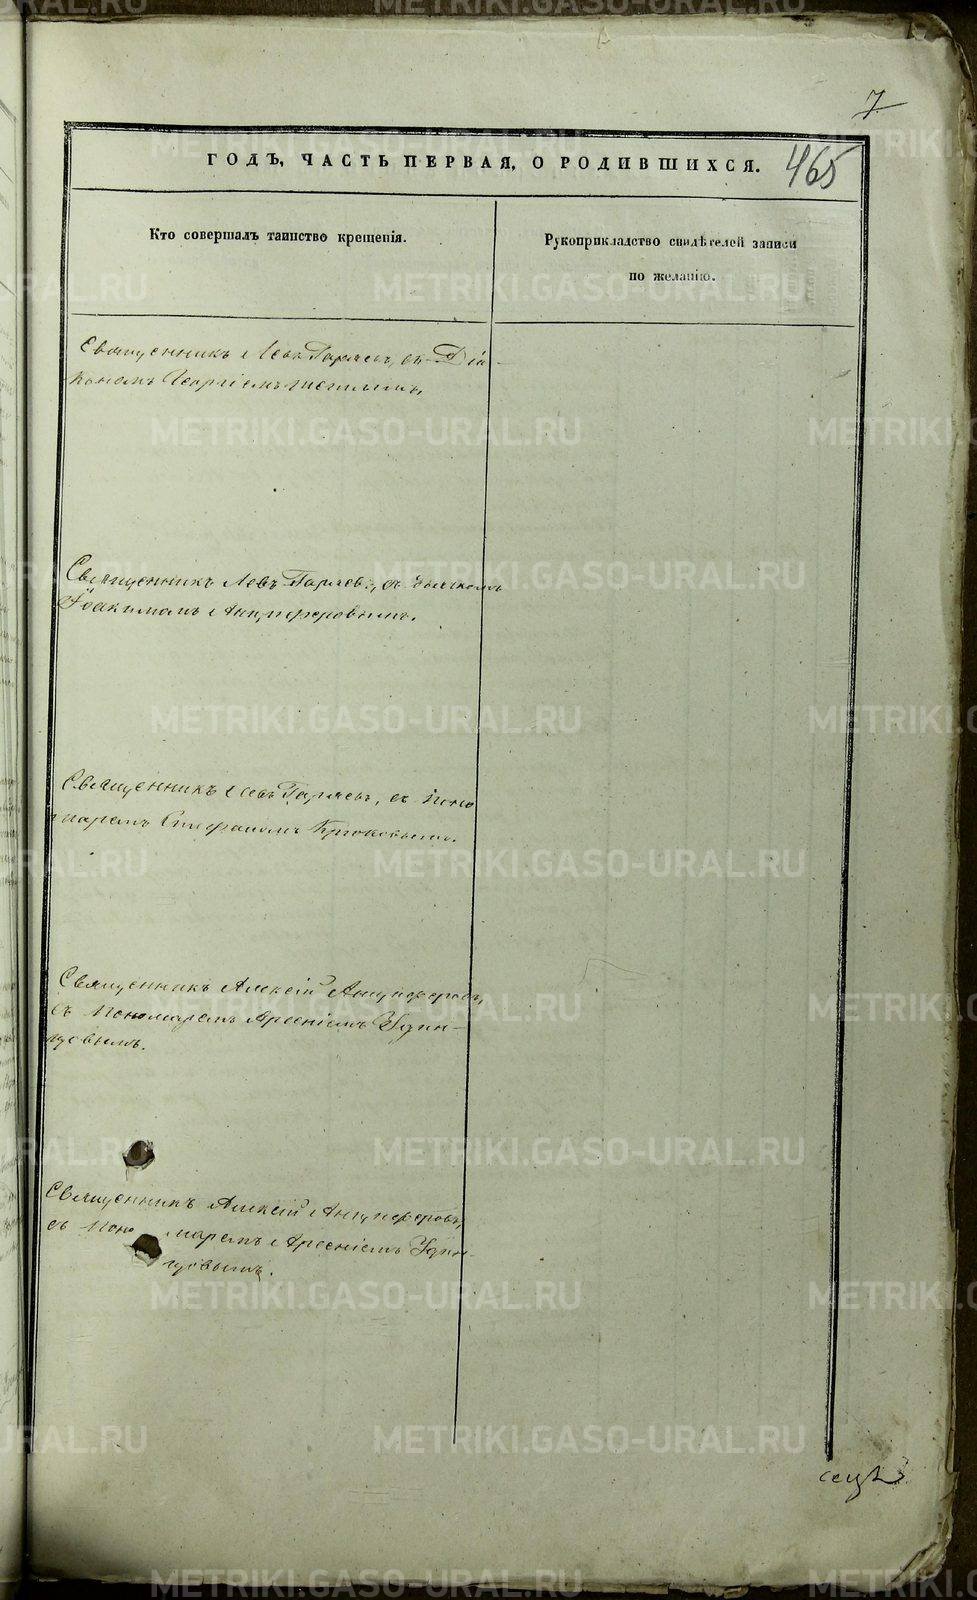 7
465
ГОДЪ, ЧАСТЬ ПЕРВАЯ, О РОДИВШИХСЯ.
Кто совершалъ таинство крещенія.
Рукоприкладство свидѣтелей записи
по желанію.
Священникъ Левъ Гаряевъ, съ Діа-
кономъ Георгіемъ
Священникъ Левъ Гаряевъ, съ
Іоакимомъ Анциферовымъ.
Священникъ Левъ Гаряевъ, съ Поно
маремъ Стефаномъ Крюковымъ.
Священникъ Алексій Анциферовъ,
съ Пономаремъ Арсеніемъ Удин-
цовымъ.
Священникъ Алексій Анциферовъ,
съ Пономаремъ Арсеніемъ Удин-
цовымъ.
METRIKI.GASO-URAL.RU